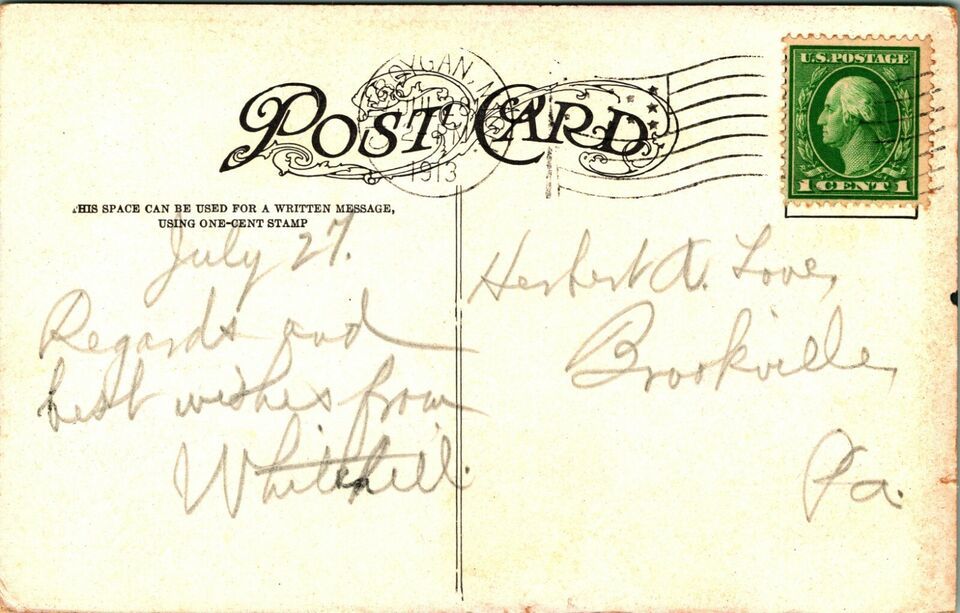 POST CARD
YGAN, M
JUL
1913
U.S. POSTAGE
1 CENT 1
THIS SPACE CAN BE USED FOR A WRITTEN MESSAGE,
USING ONE-CENT STAMP
July 27.
Regards and
best wishes from
Whitehill.
Herbert A. Love,
Brookville,
Pa.